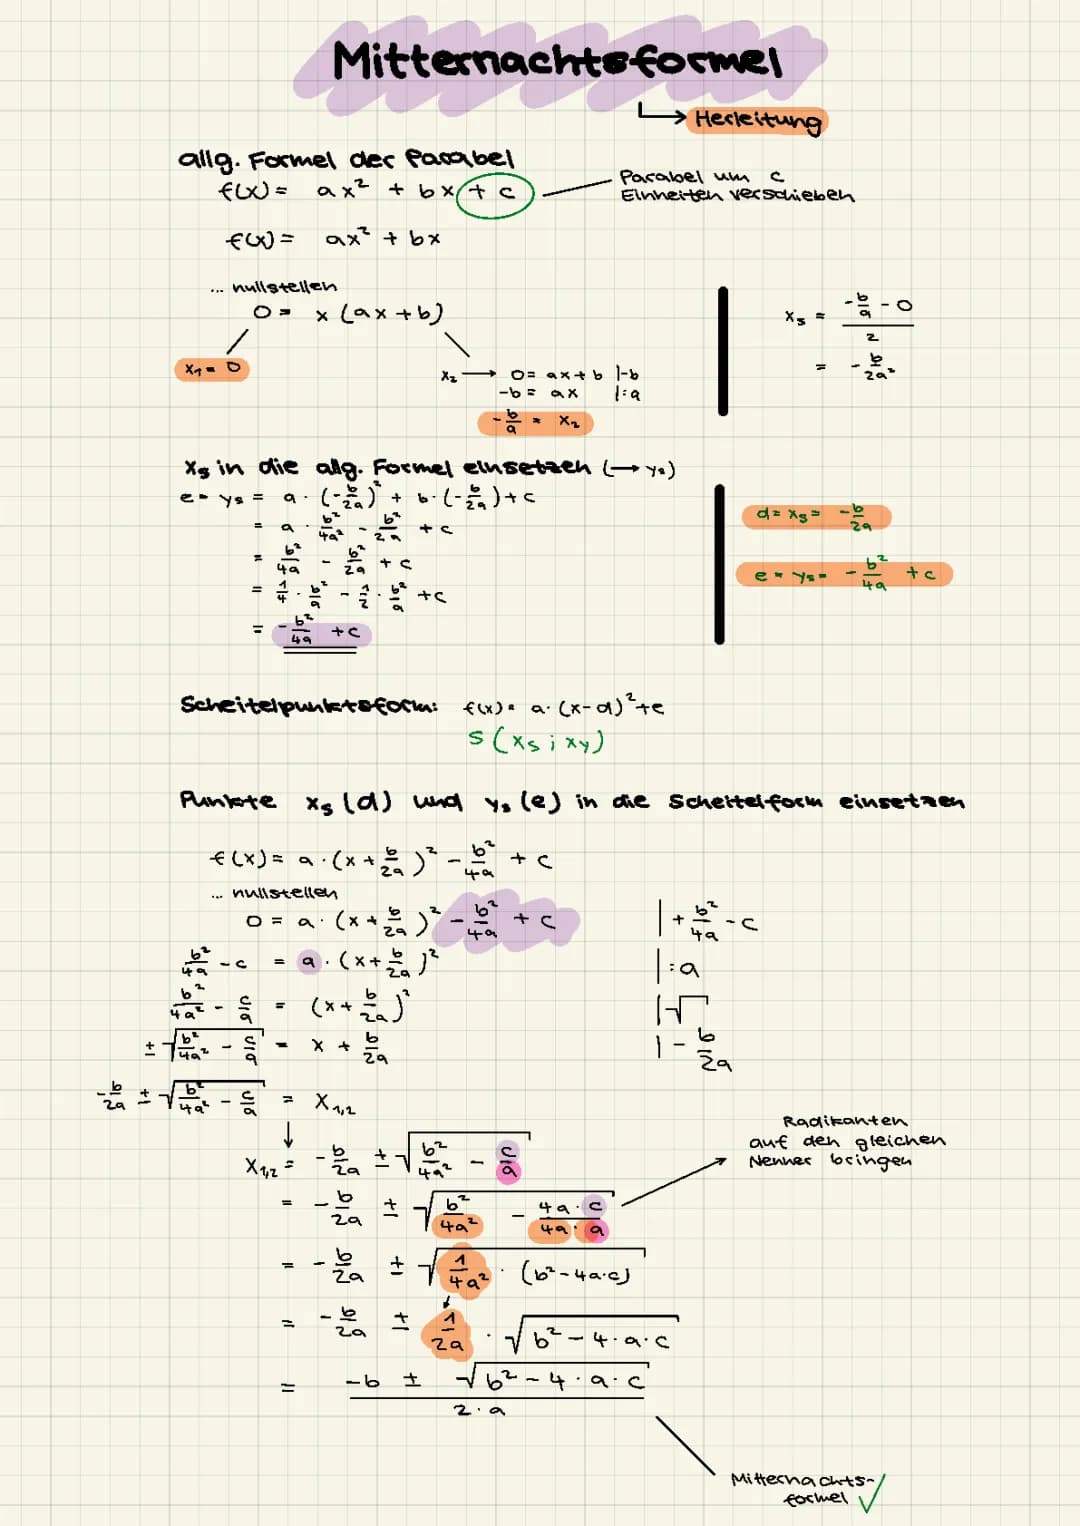 Mitternachtsformel
↳ Herleitung
allg. Formel der Parabel
f(x) = ax² + bx + c
Parabel um c
Einheiten verschieben
f(x) = ax² + bx
... nullstellen
0 = x (ax + b)
x₁ = 0
x₂ → 0 = ax + b |-b
-b = ax |:a
-b/a = x₂
xₛ = (-b/a - 0)/2
= -b/2a²
xₛ in die allg. Formel einsetzen (→ yₛ)
e = yₛ = a · (-b/2a)² + b · (-b/2a) + c
= a · b²/4a² - b²/2a + c
= b²/4a - b²/2a + c
= 1/4 · b²/a - 1/2 · b²/a + c
= -b²/4a + c
d = xₛ = -b/2a
e = yₛ = -b²/4a + c
Scheitelpunktsform: f(x) = a · (x-d)² + e
S (xₛ ; xy)
Punkte xₛ (d) und yₛ (e) in die Scheitelform einsetzen
f(x) = a · (x + b/2a)² - b²/4a + c
... nullstellen
0 = a · (x + b/2a)² - b²/4a + c | + b²/4a - c
b²/4a - c = a · (x + b/2a)² | :a
b²/4a² - c/a = (x + b/2a)² | √
± √(b²/4a² - c/a) = x + b/2a | - b/2a
-b/2a ± √(b²/4a² - c/a) = x₁,₂
↓
x₁,₂ = -b/2a ± √(b²/4a² - c/a)
Radikanten
auf den gleichen
Nenner bringen
= -b/2a ± √(b²/4a² - 4a·c/4a·a)
= -b/2a ± √(1/4a² · (b² - 4a·c))
= -b/2a ± 1/2a · √(b² - 4·a·c)
= (-b ± √(b² - 4·a·c))/2·a
Mitternachts-
formel ✓